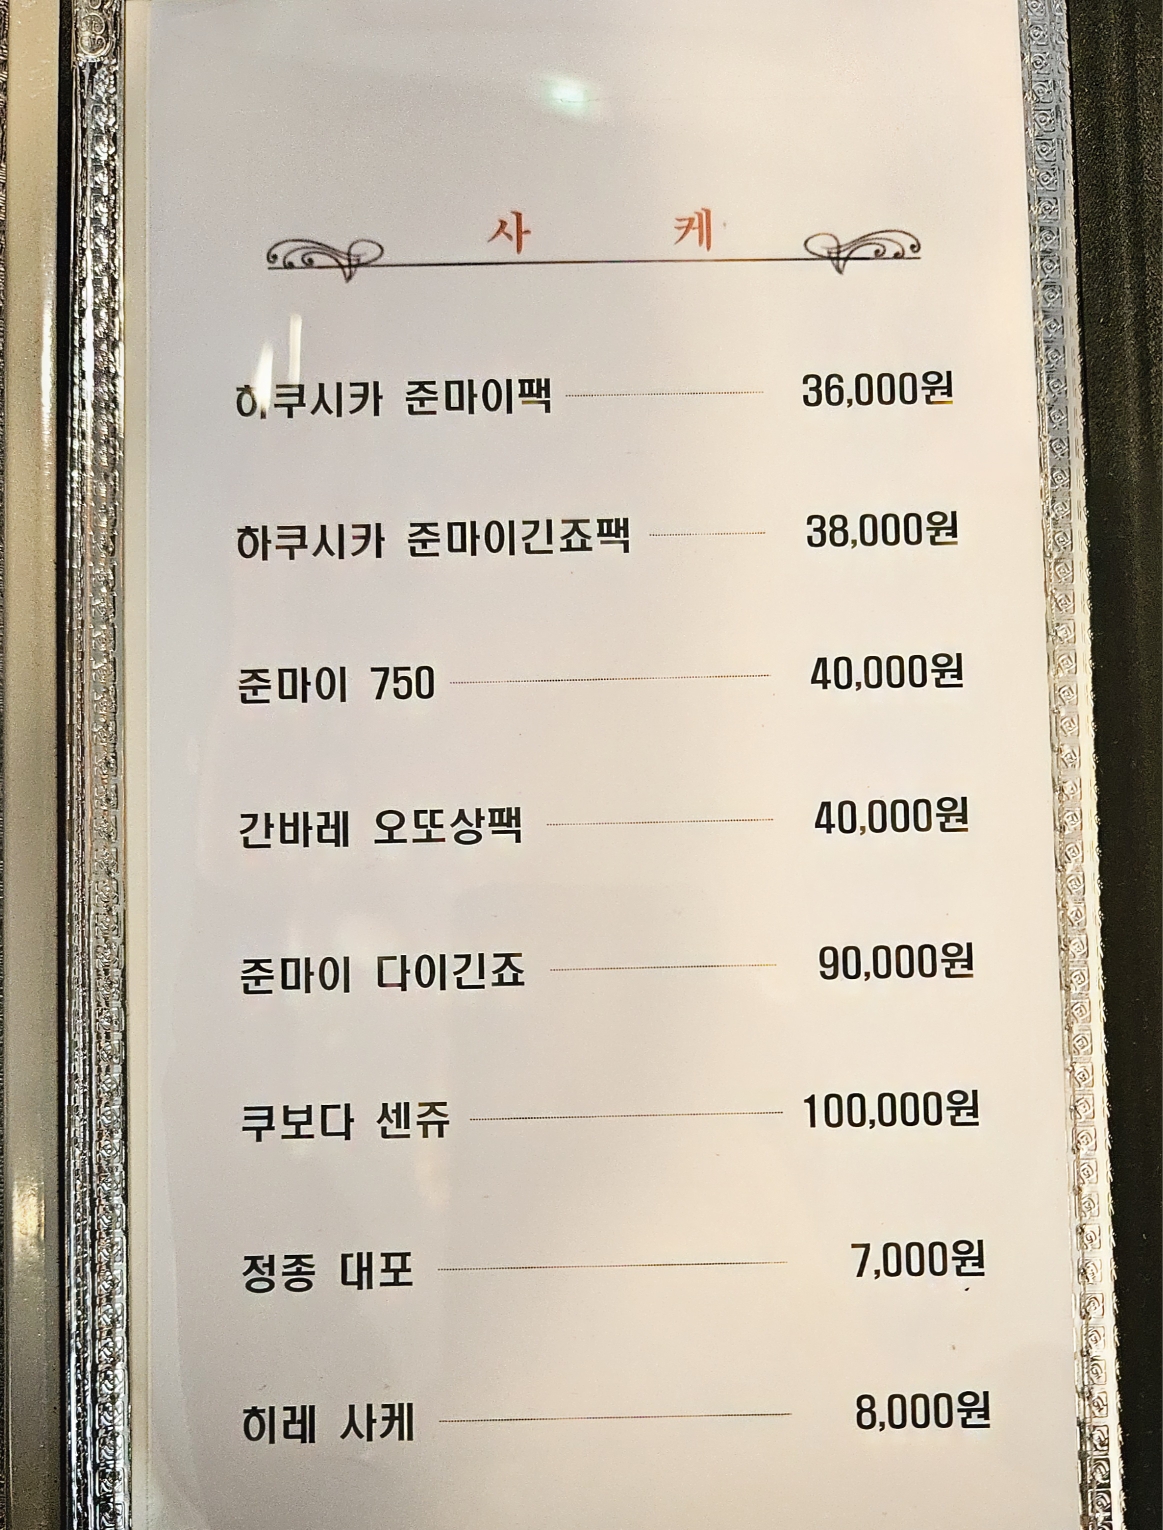 사 케
하쿠시카 준마이팩 36,000원
하쿠시카 준마이긴죠팩 38,000원
준마이 750 40,000원
간바레 오또상팩 40,000원
준마이 다이긴죠 90,000원
쿠보다 센쥬 100,000원
정종 대포 7,000원
히레 사케 8,000원